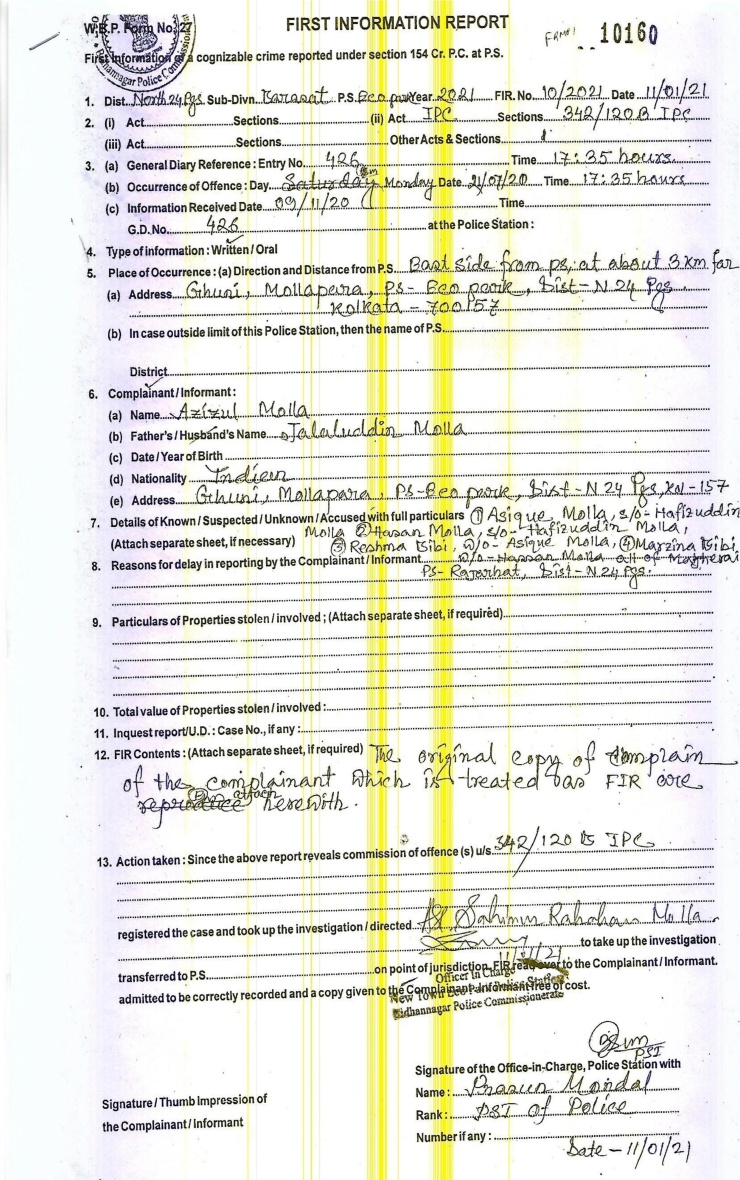 W.B.P. Form No. 27
FIRST INFORMATION REPORT
10160
Bidhannagar Police Commissionerate
First Information of a cognizable crime reported under section 154 Cr. P.C. at P.S.
1. Dist. North 24 Pgs Sub-Divn. Barasat P.S. Eco park Year 2021 FIR. No. 10/2021 Date 11/01/21
2. (i) Act Sections (ii) Act IPC Sections 342/120B IPC
(iii) Act Sections Other Acts & Sections
3. (a) General Diary Reference : Entry No. 426 Time 17:35 hours
(b) Occurrence of Offence : Day Saturday Monday Date 21/07/20 Time 17:35 hours
(c) Information Received Date 09/11/20 Time
G.D. No. 426 at the Police Station :
4. Type of information : Written / Oral
5. Place of Occurrence : (a) Direction and Distance from P.S. East side from ps, at about 3 Km far
(a) Address Ghuni, Mollapara, PS- Eco park, Dist- N 24 Pgs
Kolkata - 700157
(b) In case outside limit of this Police Station, then the name of P.S.
District
6. Complainant / Informant :
(a) Name Azizul Molla
(b) Father's / Husband's Name Jalaluddin Molla
(c) Date / Year of Birth
(d) Nationality Indian
(e) Address Ghuni, Mollapara, PS-Eco park, Dist- N 24 Pgs, Kol-157
7. Details of Known / Suspected / Unknown / Accused with full particulars ① Asique Molla, s/o- Hafizuddin
Molla ② Hasan Molla, s/o- Hafizuddin Molla,
(Attach separate sheet, if necessary) ③ Reshma Bibi, w/o- Asique Molla, ④ Marzina Bibi
8. Reasons for delay in reporting by the Complainant / Informant w/o- Hassan Molla all of
PS- Rajarhat, Dist- N 24 Pgs.
9. Particulars of Properties stolen / involved ; (Attach separate sheet, if required)
10. Total value of Properties stolen / involved :
11. Inquest report/U.D. : Case No., if any :
12. FIR Contents : (Attach separate sheet, if required) The original copy of complain
of the complainant which is treated as FIR are
reproduce attach herewith.
13. Action taken : Since the above report reveals commission of offence (s) u/s. 342/120 B IPC
registered the case and took up the investigation / directed ASI Sahinur Rahaman Molla
to take up the investigation
11/01/21
transferred to P.S. on point of jurisdiction. FIR read over to the Complainant / Informant.
Officer In Charge
admitted to be correctly recorded and a copy given to the Complainant Informant free of cost.
New Town Eco Park Police Station
Bidhannagar Police Commissionerate
PSI
Signature of the Office-in-Charge, Police Station with
Name : Prasun Mondal
Signature / Thumb Impression of
Rank : PSI of Police
the Complainant / Informant
Number if any :
Date - 11/01/21